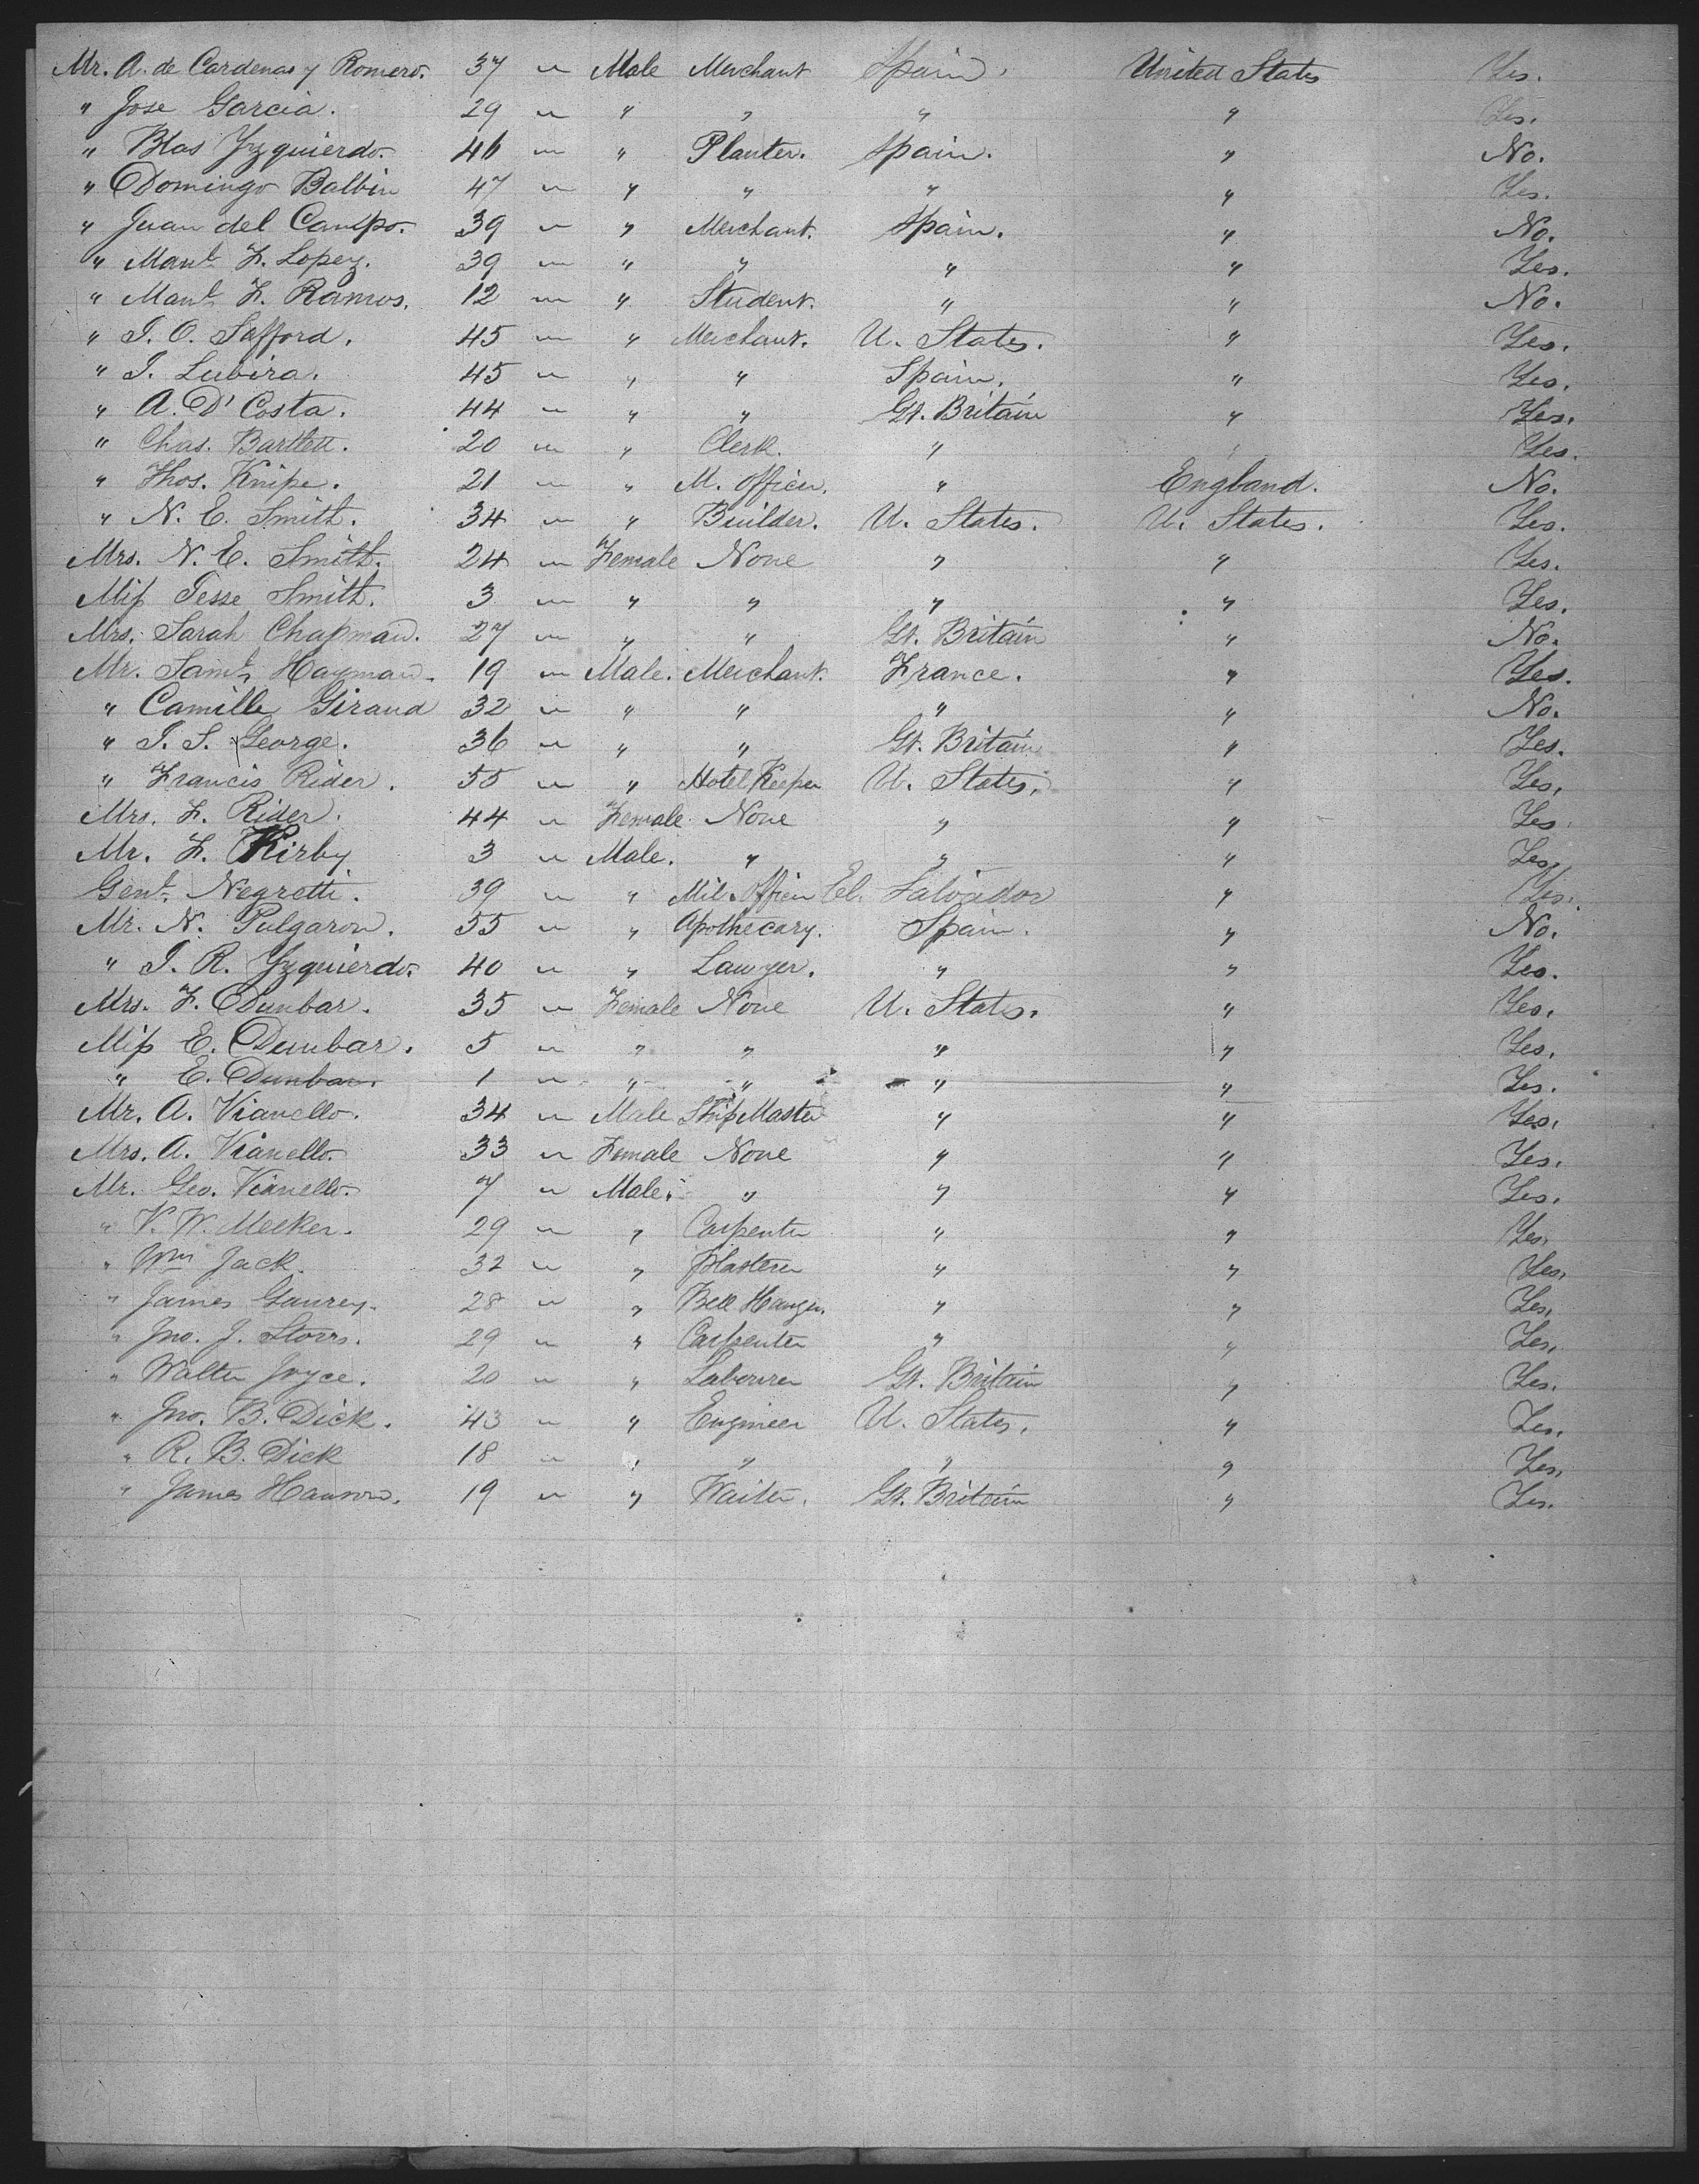 Mr. A. de Cardenas y Romero. 37 " Male Merchant Spain. United States Yes.
" Jose Garcia. 29 " " " " " Yes.
" Blas Yzquierdo. 46 " " Planter. Spain. " No.
" Domingo Balbin 47 " " " " " Yes.
" Juan del Campo. 39 " " Merchant. Spain. " No.
" Manl. F. Lopez. 39 " " " " " Yes.
" Manl. F. Ramos. 12 " " Student. " " No.
" J. O. Safford. 45 " " Merchant. U. States. " Yes.
" J. Lubira. 45 " " " Spain. " Yes.
" A. D' Costa. 44 " " " Gt. Britain " Yes.
" Chas. Bartlett. 20 " " Clerk. " " Yes.
" Thos. Knipe. 21 " " M. Officer. " England. No.
" N. E. Smith. 34 " " Builder. U. States. U. States. Yes.
Mrs. N. E. Smith. 24 " Female None " " Yes.
Miss Jesse Smith. 3 " " " " " Yes.
Mrs. Sarah Chapman. 27 " " " Gt. Britain " No.
Mr. Saml. Hayman. 19 " Male. Merchant. France. " Yes.
" Camille Giraud 32 " " " " " No.
" J. S. George. 36 " " " Gt. Britain " Yes.
" Francis Rider. 55 " " Hotel Keeper U. States. " Yes.
Mrs. F. Rider. 44 " Female None " " Yes
Mr. F. Kirby 3 " Male. " " " Yes.
Genl. Negretti. 39 " " Mil. Officer El. Salvador " Yes.
Mr. N. Pulgaron. 55 " " Apothecary. Spain. " No.
" J. R. Yzquierdo. 40 " " Lawyer. " " Yes.
Mrs. F. Dunbar. 35 " Female None U. States. " Yes.
Miss E. Dunbar. 5 " " " " " Yes.
" E. Dunbar. 1 " " " " " Yes.
Mr. A. Vianello. 34 " Male Ship Master " " Yes.
Mrs. A. Vianello. 33 " Female None " " Yes.
Mr. Geo. Vianello. 7 " Male. " " " Yes.
" V. W. Meeker. 29 " " Carpenter " " Yes.
" Wm Jack. 32 " " Plasterer " " Yes.
" James Gaurey. 28 " " Bell Hanger. " " Yes.
" Jno. J. Storrs. 29 " " Carpenter " " Yes.
" Walter Joyce. 20 " " Labourer Gt. Britain " Yes.
" Jno. B. Dick. 43 " " Engineer U. States. " Yes.
" R. B. Dick 18 " " " " " Yes.
" James Hanson. 19 " " Waiter. Gt. Britain " Yes.